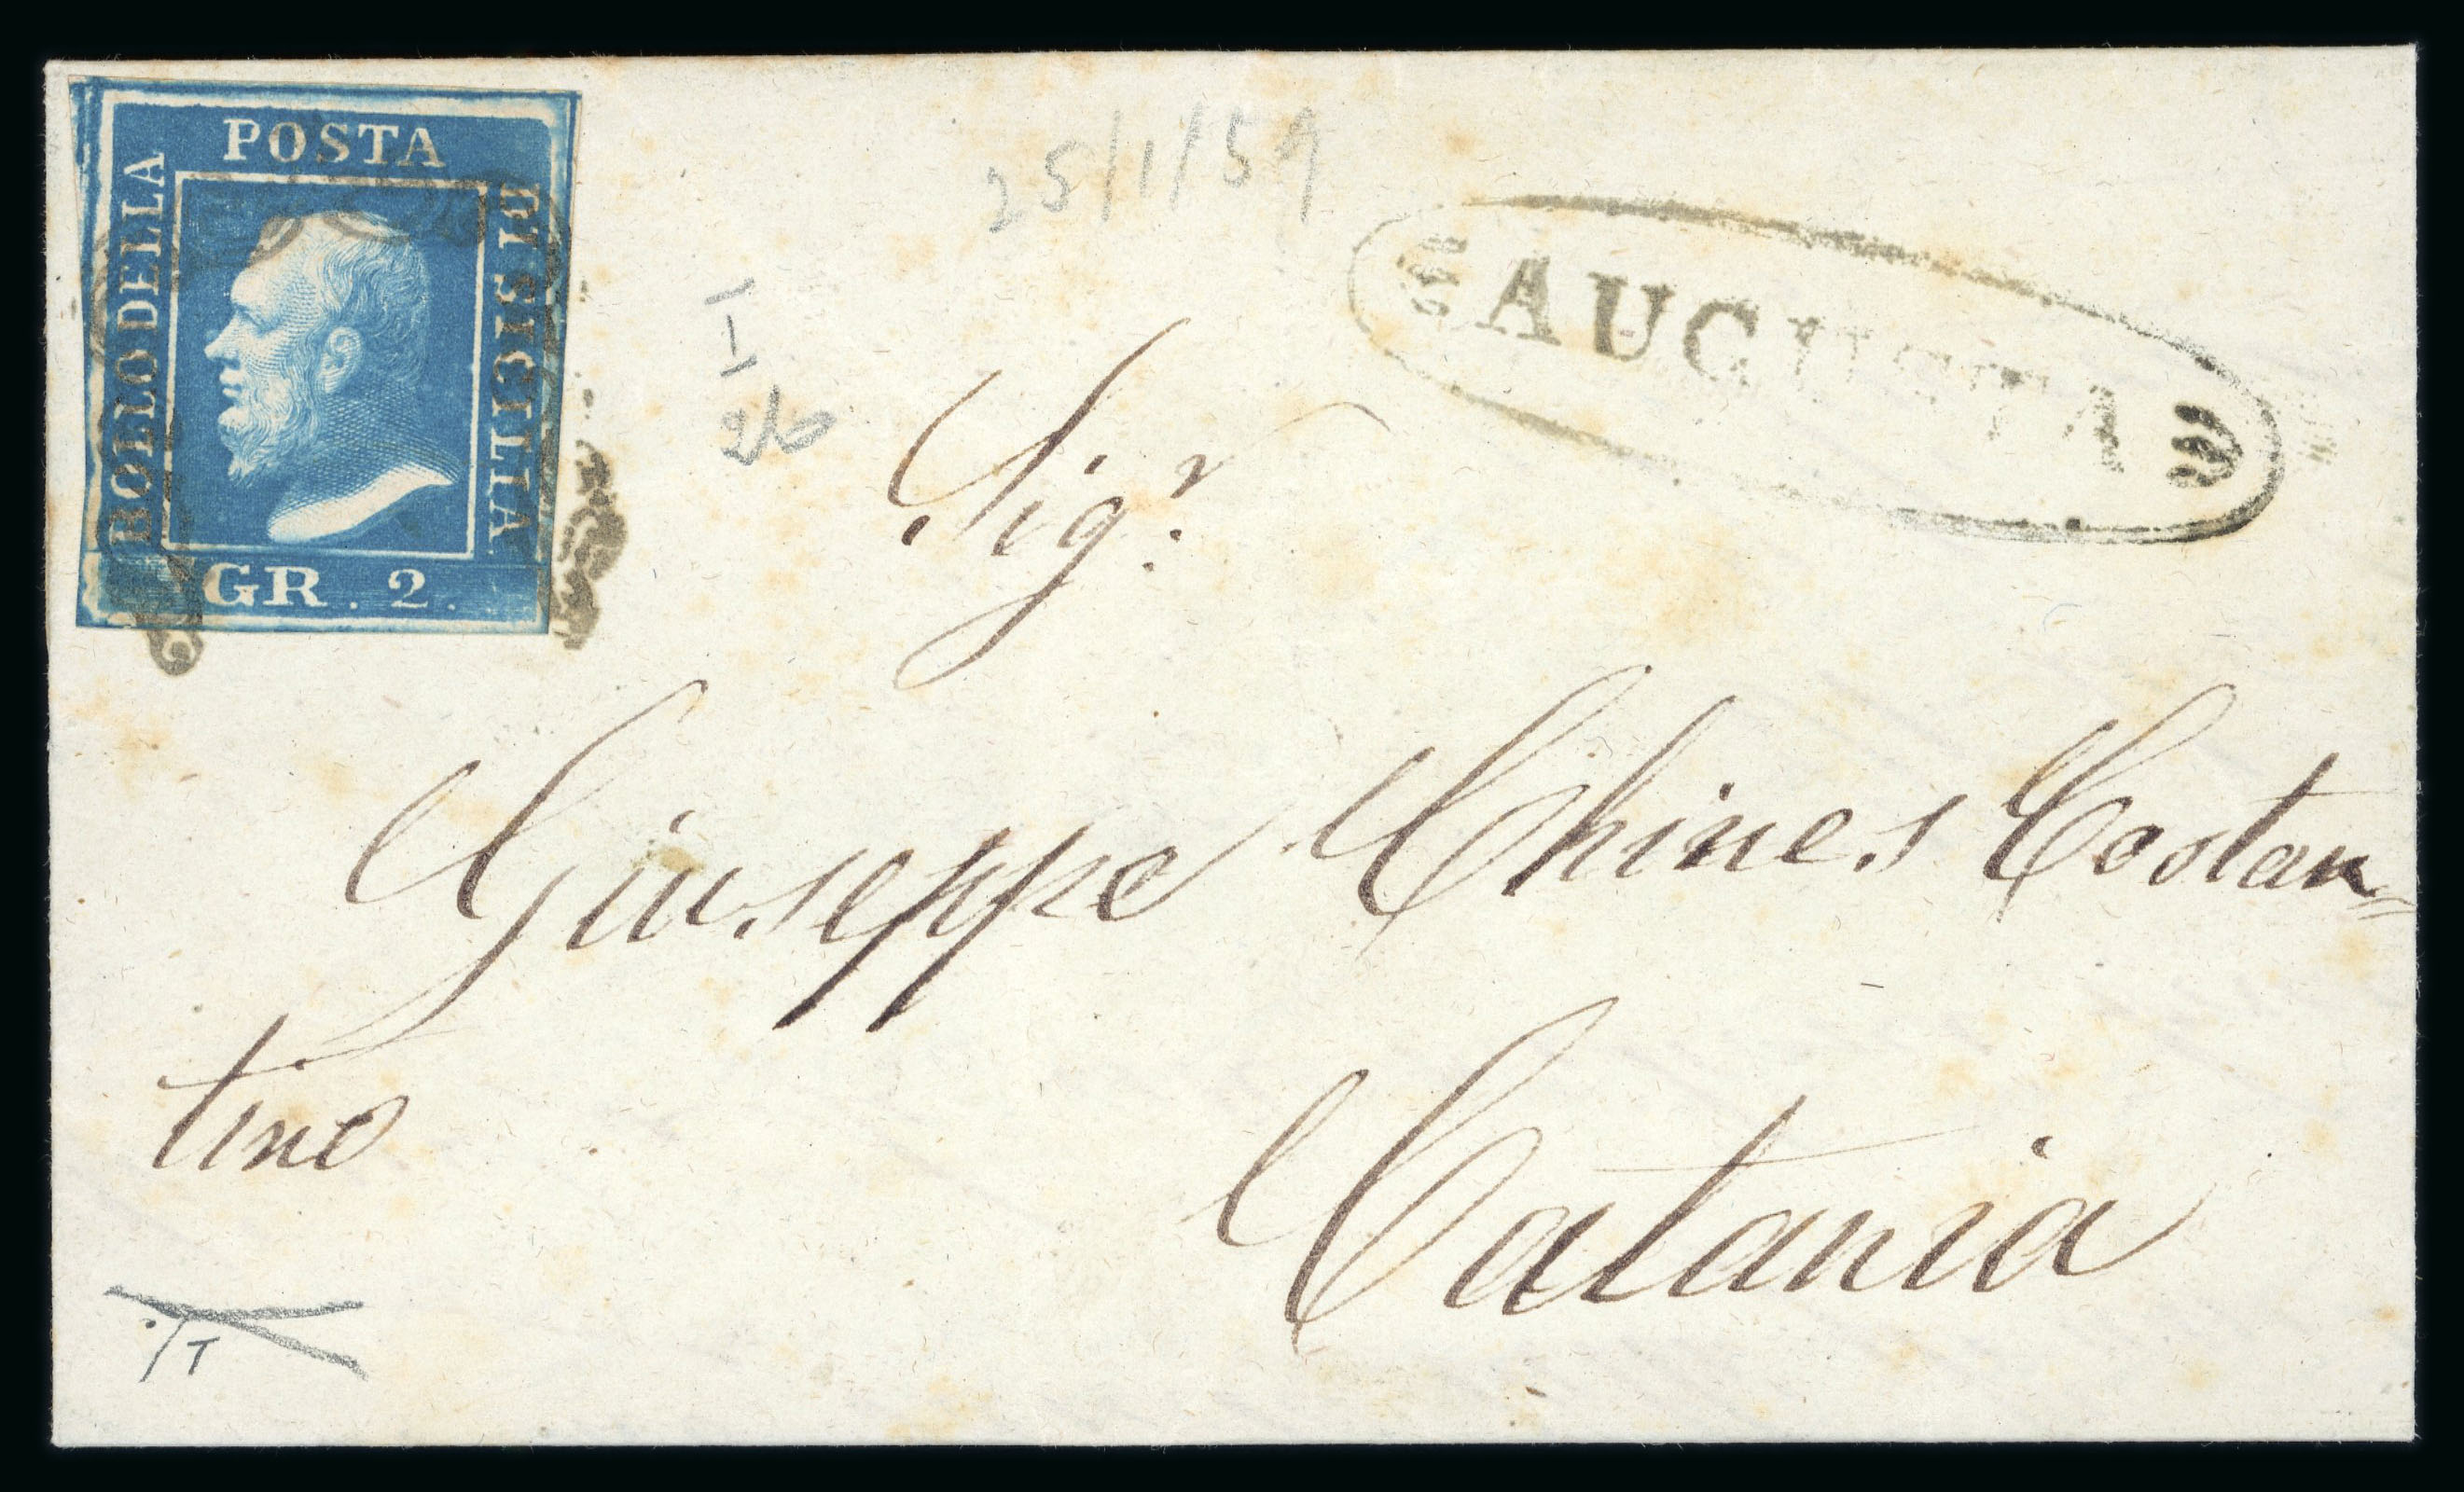 POSTA
BOLLO DELLA
DI SICILIA
GR. 2.
25/1/59
AUGUSTA
I
Sigr.
Giuseppe Chines Costan=
tino
Catania